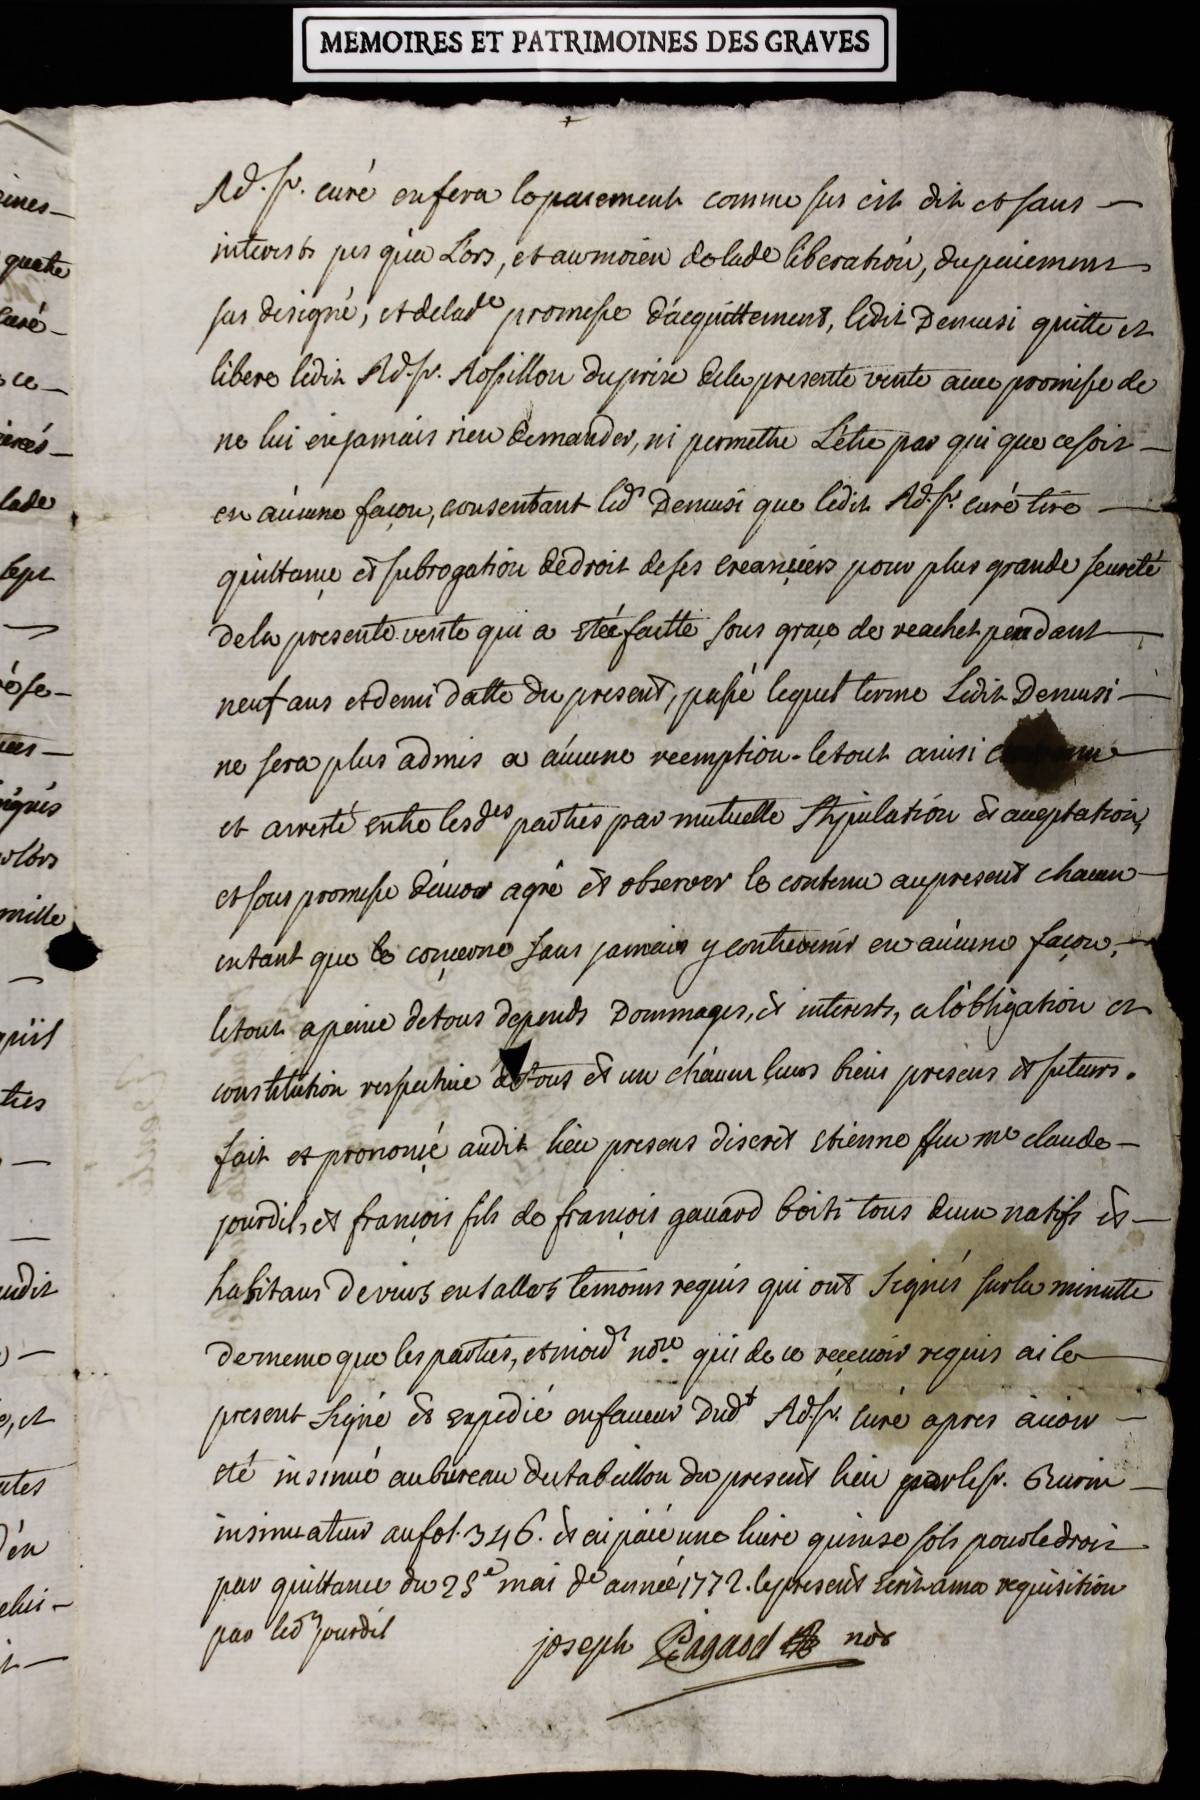 MEMOIRES ET PATRIMOINES DES GRAVES
Rd. sr. curé en fera le paiement comme sus est dit et sans
interests jus qu'a Lors, et au moien de lade liberation, du paiement
sus designé, et de lade promesse d'acquittement, ledit Demusi quitte et
libere ledit Rd. sr. Rossillon du prix de la presente vente avec promesse de
ne lui en jamais rien demander, ni permettre L'etre par qui que ce soit
en aùcune façon, consentant led Demusi que ledit Rd. sr. curé tire
quittance et subrogation de droit de ses creanciers pour plus grande seureté
de la presente vente qui a etée faitte sous grace de reachet pendant
neuf ans et demi datte du present, passé lequel terme Ledit Demusi
ne sera plus admis a aùcune reemption. le tout ainsi
et arresté entre lesdes parties par mutuelle stipulation et acceptation,
et sous promesse d'avoir agré et observer le contenu au present chacun
en tant que le concerne sans jamais y contrevenir en aùcune façon,
le tout a peine de tous depends Dommages, et interests, a l'obligation et
constitution respective de tous et un chàcun leurs biens presens et futurs.
fait et prononcé audit lieu presens discret Etienne ffeu me claude
jourdil, et françois fils de françois gavard boiti tous deux natifs et
habitans de viuz en sallaz temoins requis qui ont signés sur la minutte
de meme que les parties, et moid nore. qui de ce recevoir requis ai le
present signé et expedié en faveur dudt Rd. sr. curé apres àvoir
eté insinué au bureau du tabellion du present lieu par le sr.
insinuateur au fol. 346. et ai paié une livre quinse sols pour le droit
par quittance du 25e mai de année 1772. le present ecrit a ma requisition
par led jourdil
joseph Pagaod nore